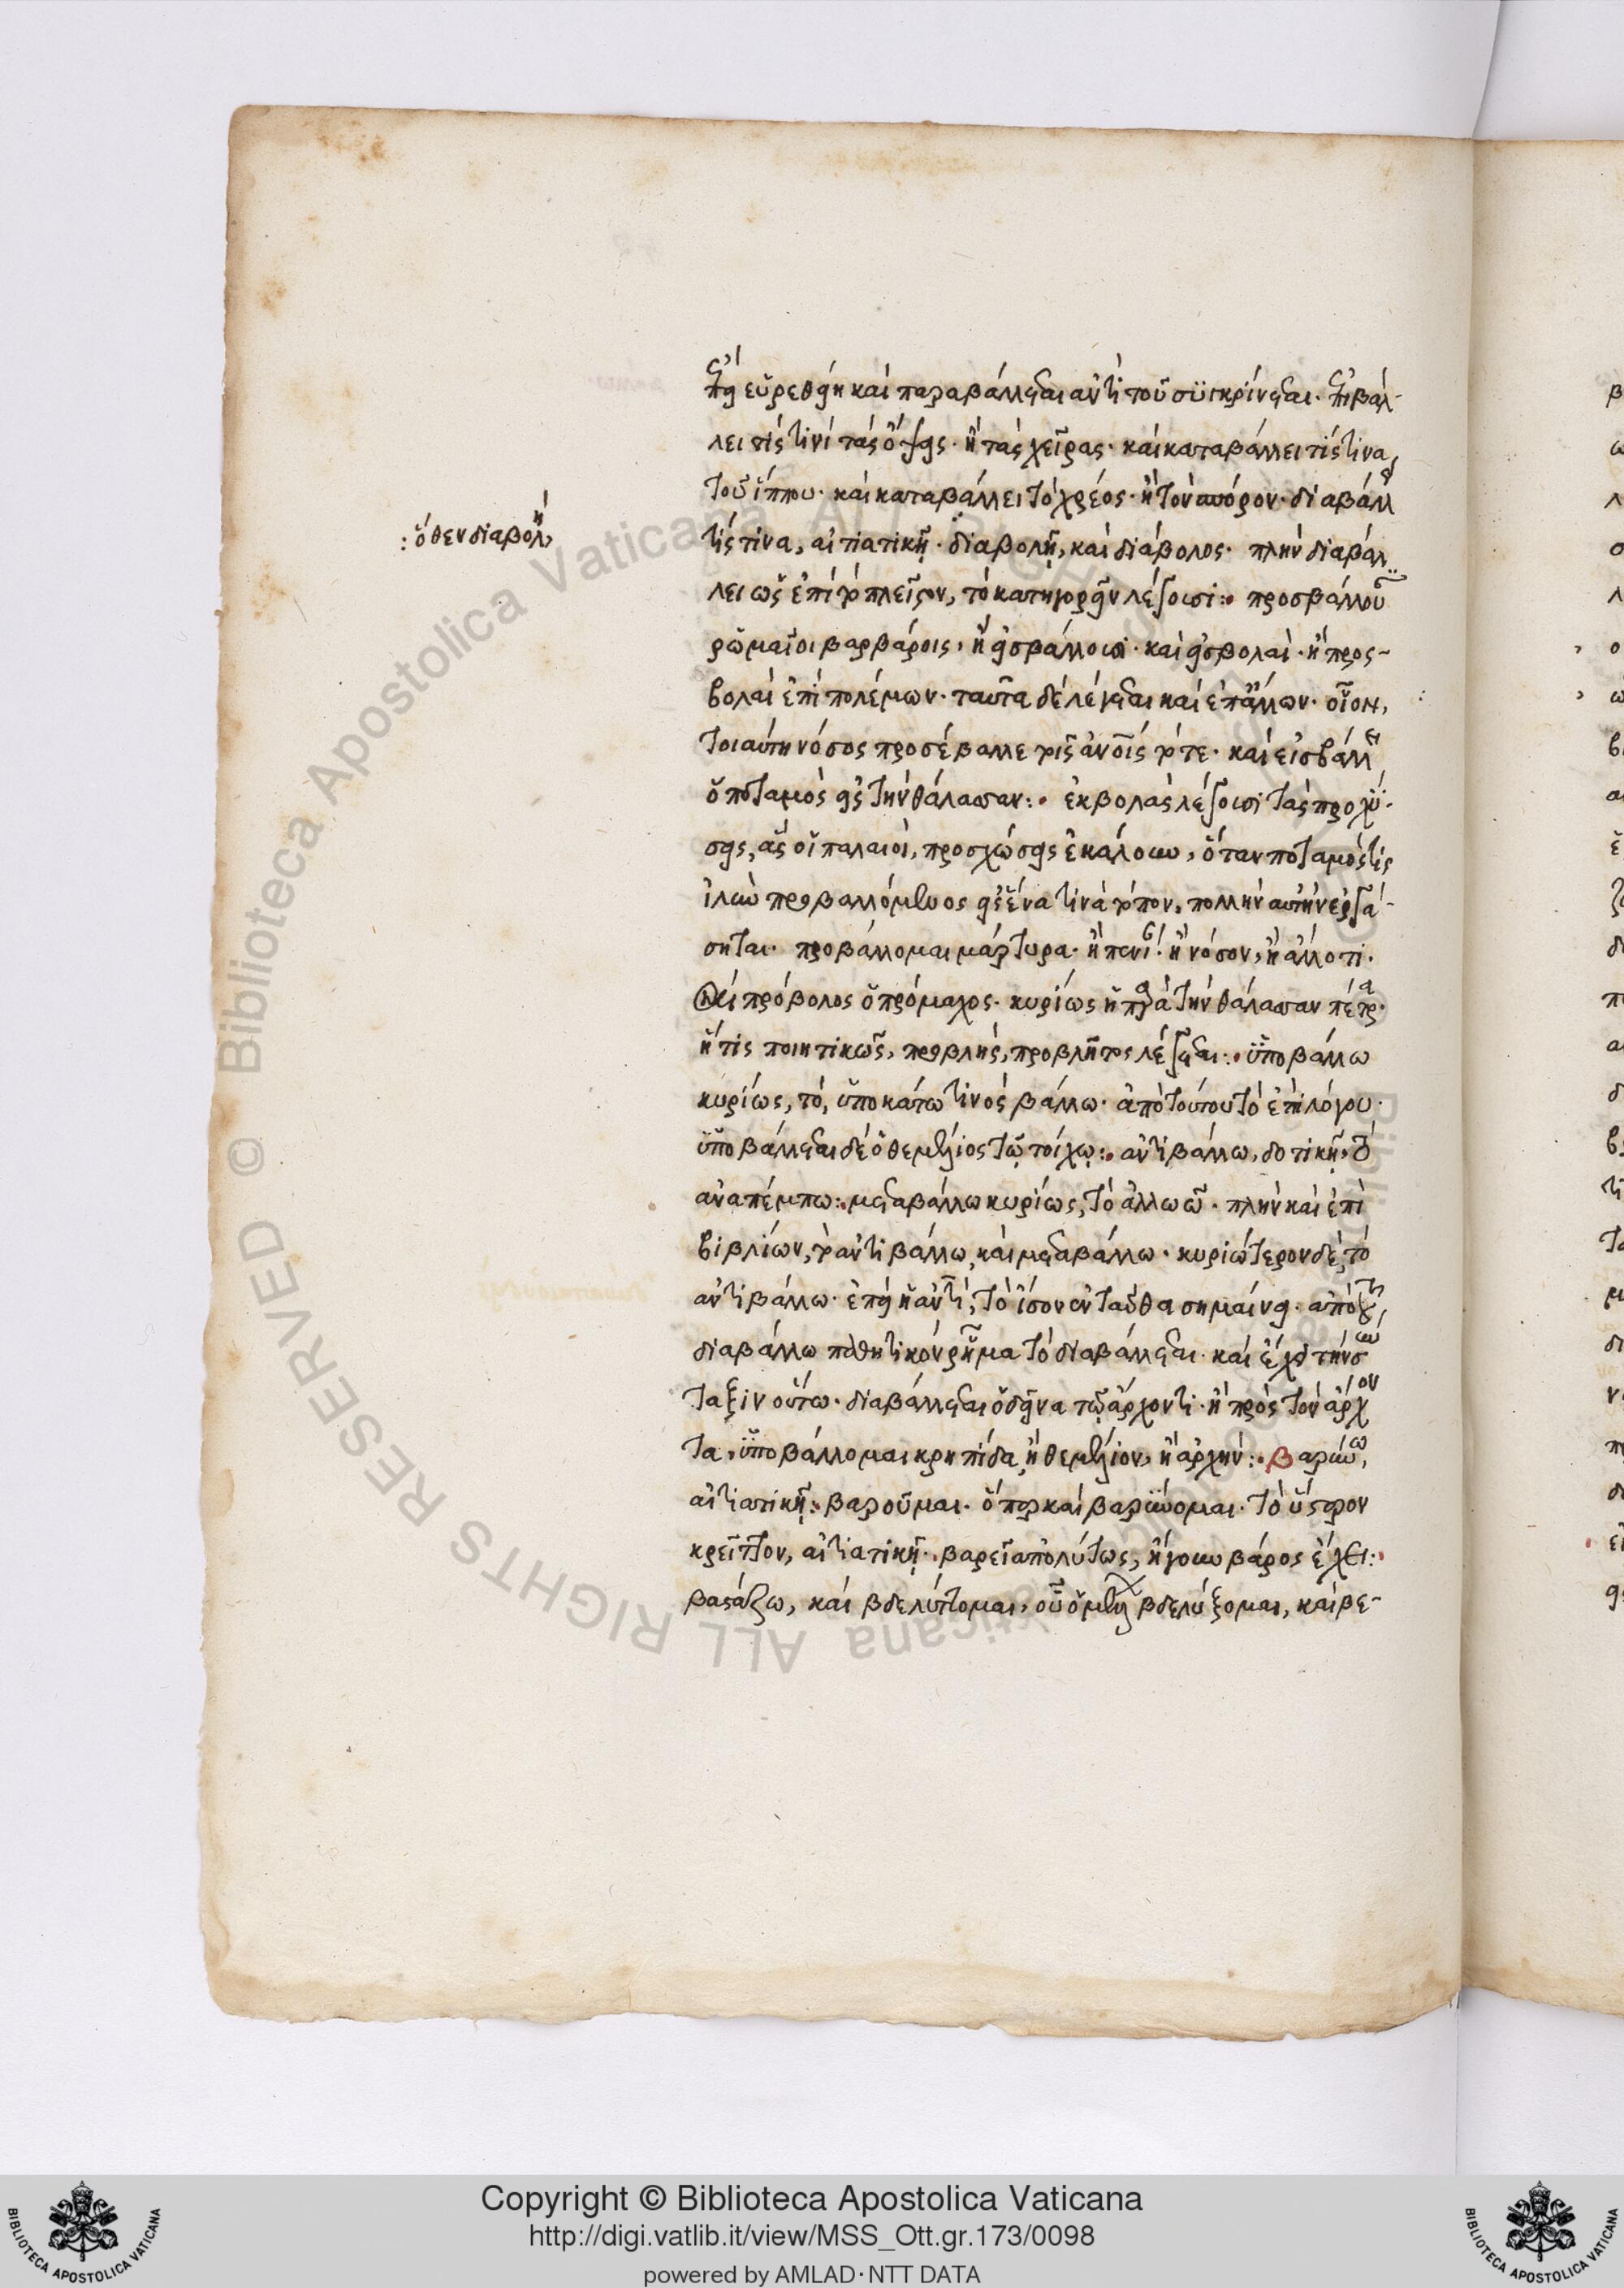 ἐπεὶ εὕρεθη καὶ παραβάλλεται ἀντὶ τοῦ συγκρίνεται. ἐπιβάλ-
λει τίς τινὶ τὰς ὄψεις. ἢ τὰς χεῖρας. καὶ καταβάλλει τίς τινα
τοῦ ἵππου. καὶ καταβάλλει τὸ χρέος. ἢ τὸν σπόρον. διαβάλλει
: ὅθεν διαβολή
τίς τινα, αἰτιατικῇ. διαβολή, καὶ διάβολος. πλὴν διαβάλ-
λει ὡς ἐπὶ τὸ πλεῖστον, τὸ κατηγορεῖν λέγουσι: προσβάλλουσι
ῥωμαῖοι βαρβάροις, ἢ εἰσβάλλουσι. καὶ εἰσβολαὶ. ἢ προσ-
βολαὶ ἐπὶ πολέμων. ταῦτα δὲ λέγεται καὶ ἐπ' ἄλλων. οἷον,
τοιαύτη νόσος προσέβαλλε τοῖς ἀνοις τότε. καὶ εἰσβάλλει
ὁ ποταμὸς εἰς τὴν θάλασσαν: ἐκβολὰς λέγουσι τὰς προχύ-
σεις, ἃς οἱ παλαιοὶ, προσχώσεις ἐκάλουν, ὅταν ποταμός τις
ἰλὺν προβαλλόμενος εἰς ἕνα τινὰ τόπον, πολλὴν αὐτὴν ἐργά-
σηται. προβάλλομαι μάρτυρα. ἢ πενίαν. ἢ νόσον, ἢ ἄλλο τι.
καὶ πρόβολος ὁ πρόμαχος. κυρίως ἡ παρὰ τὴν θάλασσαν πέτρα.
ἥτις ποιητικῶς, προβλής, προβλῆτος λέγεται: ὑποβάλλω
κυρίως, τό, ὑποκάτω τινὸς βάλλω. ἀπὸ τούτου τὸ ἐπὶ λόγου.
ὑποβάλλεται δὲ ὁ θεμέλιος τῷ τοίχῳ: ἀντιβάλλω, δοτικῇ, τὸ
ἀναπέμπω: μεταβάλλω κυρίως, τὸ ἀλλοιῶ. πλὴν καὶ ἐπὶ
βιβλίων, τὸ ἀντιβάλλω, καὶ μεταβάλλω. κυριώτερον δὲ, τὸ
ἀντιβάλλω. ἐπεὶ ἡ ἀντὶ, τὸ ἴσον ἐνταῦθα σημαίνει. ἀπὸ τοῦ
διαβάλλω παθητικὸν ῥῆμα τὸ διαβάλλεται. καὶ ἔχει τὴν σύν
ταξιν οὕτω. διαβάλλεται ὁ δεῖνα τῷ ἄρχοντι. ἢ πρὸς τὸν ἄρχον
τα, ὑποβάλλομαι κρηπίδα, ἢ θεμέλιον, ἢ ἀρχήν: βαρύνω,
αἰτιατικῇ: βαροῦμαι. ὅπερ καὶ βαρύνομαι. τὸ ὕστερον
κρεῖττον, αἰτιατικῇ. βαρεῖ ἀπολύτως, ἤγουν βάρος ἔχει:
βαστάζω, καὶ βδελύττομαι, οὗ ὁ μέλλων βδελύξομαι, καὶ βε-
Copyright © Biblioteca Apostolica Vaticana
http://digi.vatlib.it/view/MSS_Ott.gr.173/0098
powered by AMLAD·NTT DATA